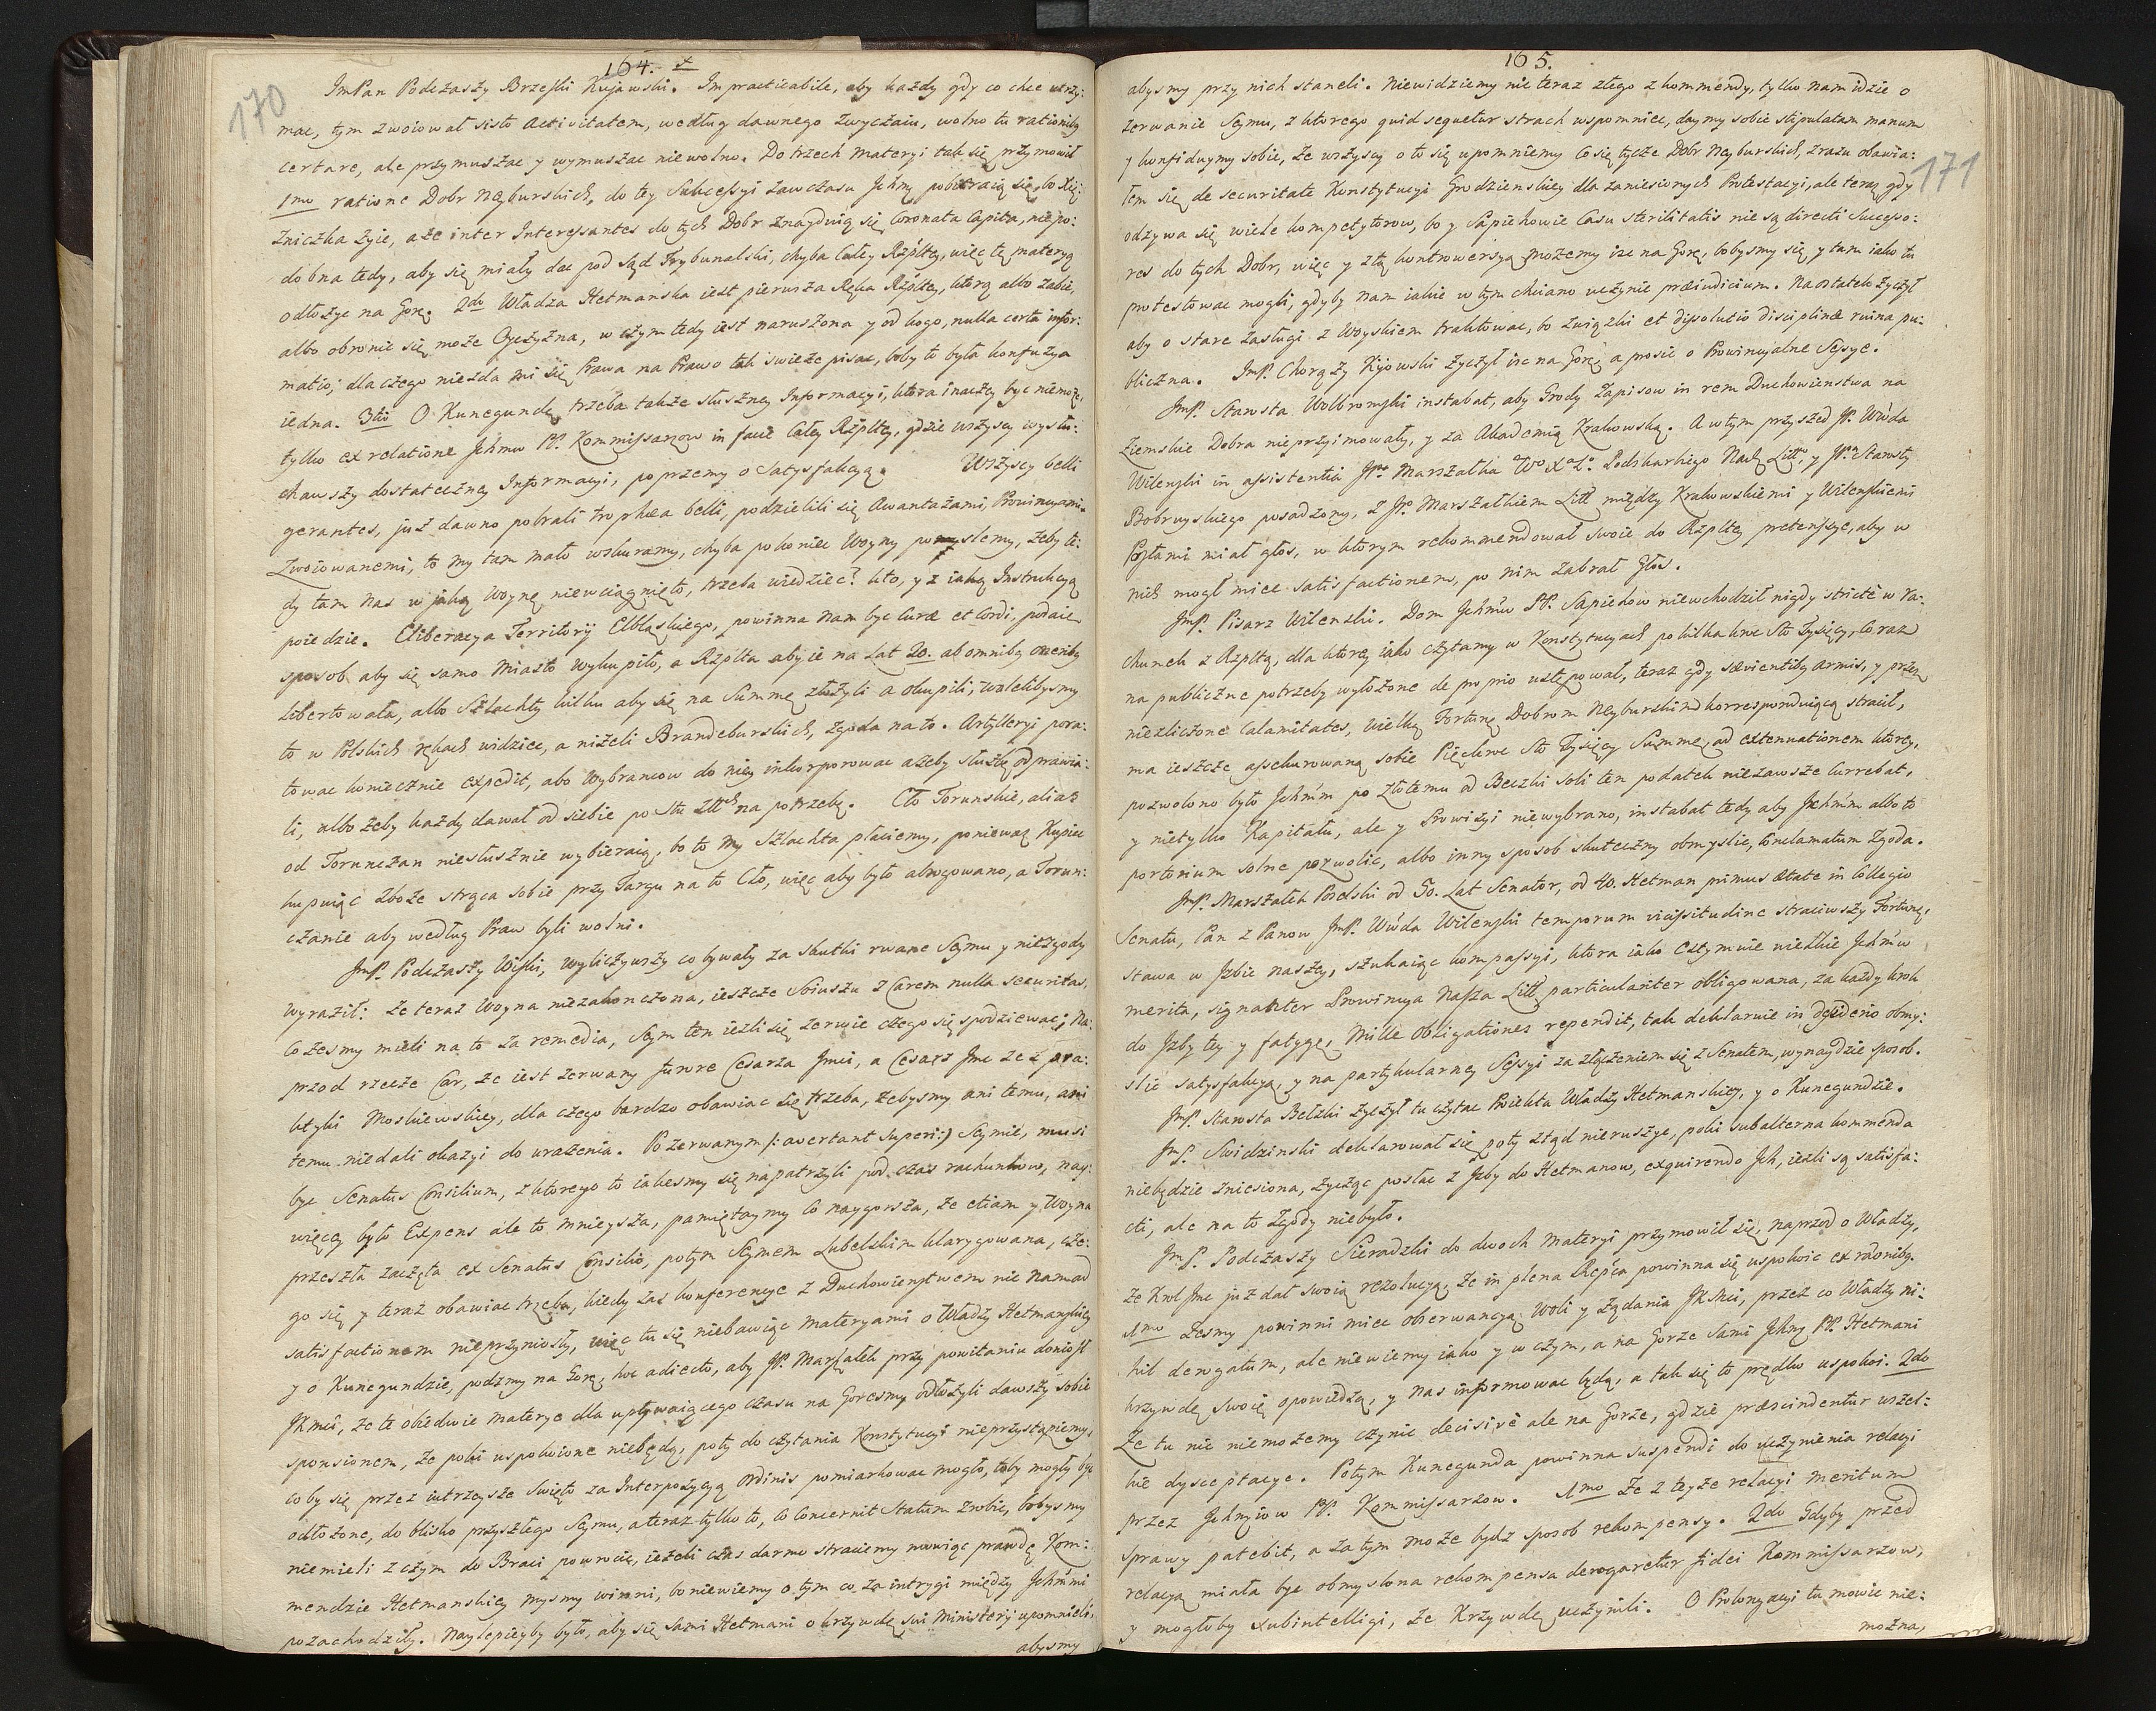 164. x
170
ImPan Podczaszy Brzeski Kujawski. Impracticabile, aby każdy gdy co chce utrzy:
mac, tym zwoiował sisto Activitatem, według dawnego zwyczaiu, wolno tu rationibq
certare, ale przymuszac y wymuszac niewolno. Do trzech materyi tak się przymowił
1mo ratione Dobr Neyburskich, do tey Sukcessyi zawczasu Jchmę pobieraią się, bo Xię:
zniczka żyie, a że inter Interessantes do tych Dobr znayduią się Coronata Capita, nie po:
dobna tedy, aby się miały dac pod sąd Trybunalski, chyba całey Rzpltey, więc tę materyą
odłożyc na Gorę. 2do Władza Hetmanska iest pierwsza Ręka Rzpltey, ktorą albo zabic,
albo obronic się może Oyczyzna, w czym tedy iest naruszona y od kogo, nulla certa infor:
matio; dla czego niezda mi się Prawa na Prawo tak swieże pisac, boby to była konfuzya
iedna. 3tio O Kunegundę trzeba także słuszney Informacyi, ktora inaczey byc niemoże,
tylko ex relatione Jchmw PP. Kommissarzow in facie całey Rzpltey, gdzie wszyscy wysłu:
chawszy dostateczney Informacyi, poprzemy o Satysfakcyą. Wszyscy belli
gerantes, już dawno pobrali trophæa belli, podzielili się Awantażami, Prowincyami
Zwoiowanemi, to my tam mało wskuramy, chyba po koniec Woyny pomyslemy, żeby te:
dy tam nas w jaką Woynę niewciągnięto, trzeba wiedziec? kto, y z iaką Instrukcyą
poiedzie. Eliberacya Territorij Elbląskiego, powinna nam byc Curæ et Cordi, podaie
sposob, aby się samo miasto wykupiło, a Rzplta aby ie na Lat 20. ab omnibq oneribq
libertowała, albo Szlachty kilku aby się na Summę złożyli a okupili, wolelibysmy
to w Polskich rękach widziec, a niżeli Brandeburskich, zgoda na to. Artylleryi pora:
towac koniecznie expedit, abo Wybrancow do niey inkorporowac ażeby służbę odprawia:
li, albo żeby każdy dawał od siebie po Stu Złłch na potrzebę. Cło Torunskie, alias
od Torunczan niesłusznie wybieraią, bo to my Szlachta płaciemy, poniewaz Kupiec
kupuiąc zboże strąca sobie przy Targu na to Cło, więc aby było abrogowano, a Torun:
czanie aby według Praw byli wolni.
JmP. Podczaszy Wiski, wyliczywszy co bywały za skutki rwane Seymu y niezgody
wyraził: że teraz Woyna niezakonczona, ieszcze Soiuszu z Carem nulla securitas,
cożesmy mieli na to za remedia, Seym ten ieżli się zerwie czego się spodziewac; Na:
przod rzecze Car, że iest zerwany furore Cesarza Jmci, a Cesarz Jmc że z pra:
ktyki Moskiewskiey, dla czego bardzo obawiac się trzeba, żebysmy ani temu, ani
temu niedali okazyi do urażenia. Po zerwanym /: avertant Superi:/ Seymie, musi
byc Senatus Consilium, z ktorego to iakesmy się napatrzyli pod czas rachunkow, nay:
więcey było Expens ale to mnieysza, pamiętaymy co naygorsza, że etiam y Woyna
przeszła zaczęta ex Senatus Consilio, potym Seymem Lubelskim klarygowana, cze:
go się y teraz obawiac trzeba, kiedy zas konferencye z Duchowienstwem nic nam ad
satisfactionem nieprzyniosły, więc tu się niebawiąc materyami o Władzy Hetmanskiey
y o Kunegundzie, podzmy na Gorę, hoc adiecto, aby JP. Marszałek przy powitaniu doniosł
JKmci, że te obiedwie materye dla upływaiącego czasu na Goresmy odłożyli dawszy sobie
sponsionem, że poki uspokoione niebędą, poty do czytania Konstytucyi nieprzystąpiemy,
co by się przez iutrzeysze Swięto za Interpozycyą Ordinis pomiarkowac mogło, toby mogły byc
odłożone, do blisko przyszłego Seymu, a teraz tylko to, co concernit Statum zrobic, bobysmy
niemieli z czym do Braci powrocic, ieżeli czas darmo straciemy mowiąc prawdę Kom:
mendzie Hetmanskiey mysmy winni, bo niewiemy o tym co za intrygi między Jchmmi
pozachodziły. Naylepieyby było, aby się sami Hetmani o krzywdę sui Ministerij upomnieli,
abysmy
165.
171
abysmy przy nich staneli. Niewidziemy nic teraz złego z kommendy, tylko nam idzie o
zerwanie Seymu, z ktorego quid sequetur strach wspomniec, daymy sobie stipulatam manum
y konfiduymy sobie, że wszyscy o to się upomniemy. Co się tycze Dobr Neyburskich, zrazu obawia:
łem się de securitate Konstytucyi Grodzienskiey dla zaniesionych Protestacyi, ale teraz gdy
odzywa się wiele kompetytorow, bo y Sapiehowie Casu sterilitatis nie są directi Successo:
res do tych Dobr, więc y z tą kontrowersyą możemy isc na Gorę, bobysmy się, y tam iako tu
protestowac mogli, gdyby nam iakie w tym chciano uczynic præiudicium. Na ostatek życzył
aby o stare zasługi z Woyskiem traktowac, bo związki et dissolutio disciplinæ ruina pu:
bliczna. JmP. Chorąży Kijowski życzył isc na Gorę, a prosic o Prowincyalne Sessye.
JmP. Starosta Wolbromski instabat, aby Grody Zapisow in rem Duchowienstwa na
Ziemskie Dobra nieprzyimowały, y za Akademią Krakowską. A wtym przyszed JP. Wwda
Wilenski in assistentia JPo Marszałka Wo X Lo Podskarbiego Nad. Litto y JPa Starosty
Bobruyskiego posadzony, z JPo Marszałkiem Litt między Krakowskiemi y Wilenskiemi
Posłami miał głos, w ktorym rekommendował swoie do Rzpltey pretensye, aby w
nich mogł miec satisfactionem, po nim zabrał Głos.
JmP. Pisarz Wilenski. Dom Jchmw PP. Sapiehow niewchodził nigdy stricte w ra:
chunek z Rzpltą, dla ktorey iako czytamy w Konstytucyach po kilka kroc Sto Tysięcy, co raz
na publiczne potrzeby wyłożone de proprio ustępował, teraz gdy sævientibq armis, y przez
niezliczone calamitates, wielką Fortunę Dobrom Neyburskim korresponduiącą stracił,
ma ieszcze assekurowaną sobie Pięckroc Sto Tysięcy Summę, ad extenuationem ktorey,
pozwolono było Jchmm po złotemu od Beczki soli ten podatek niezawsze currebat,
y nietylko Kapitału, ale y Prowizyi niewybrano, instabat tedy aby Jchmm albo to
portorium solne pozwolic, albo inny sposob skuteczny obmyslic, conclamatum zgoda.
JmP. Marszałek Poselski od 50. Lat Senator, od 40. Hetman primus ætate in Collegio
Senatu, Pan z Panow JmP. Wwda Wilenski temporum vicissitudine straciwszy Fortunę,
stawa w Jzbie naszey, szukaiąc kompassyi, ktora iako estymuie wielkie Jchmw
merita, signanter Prowincya Nasza Litt particulariter obligowana, za każdy krok
do Jzby tey y fatygę, Mille Obligationes rependit, tak deklaruie in desiderio obmy:
slic satysfakcyą, y na partykularney Sessyi za złączeniem się z Senatem, wynaydzie sposob.
JmP. Starosta Bełzki życzył tu czytac Proiekta Władzy Hetmanskiey, y o Kunegundzie.
JmP. Swidzinski deklarował się poty ztąd nieruszyc, poki subalterna kommenda
niebędzie zniesiona, życząc posłac z Jzby do Hetmanow, exquirendo Jch, ieżli są satisfa:
cti, ale na to zgody niebyło.
JmP. Podczaszy Sieradzki do dwoch materyi przymowił się, naprzod o Władzy,
że Krol Jmc już dał swoią rezolucyą, że in plena Repca powinna się uspokoic ex rationibq.
1mo Żesmy powinni miec obserwancyą Woli y żądania JKMci, przez co Władzy ni:
hil derogatum, ale niewiemy iako y w czym, a na Gorze sami Jchmę PP. Hetmani
krzywdę swoię opowiedzą, y nas informowac będą, a tak się to prędko uspokoi. 2do
Że tu nic niemożemy czynic decisivè ale na Gorze, gdzie præscindentur wszel:
kie dysceptacye. Potym Kunegunda powinna suspendi do uczynienia relacyi
przez Jchmciow PP. Kommissarzow. 1mo Że z teyże relacyi meritum
sprawy patebit, a zatym może bydz sposob rekompensy. 2do Gdyby przed
relacyą miała byc obmyslona rekompensa derogaretur fidei Kommissarzow,
y mogłoby subintelligi, że Krzywdę uczynili. O Prolongacyi tu mowic nie:
można,